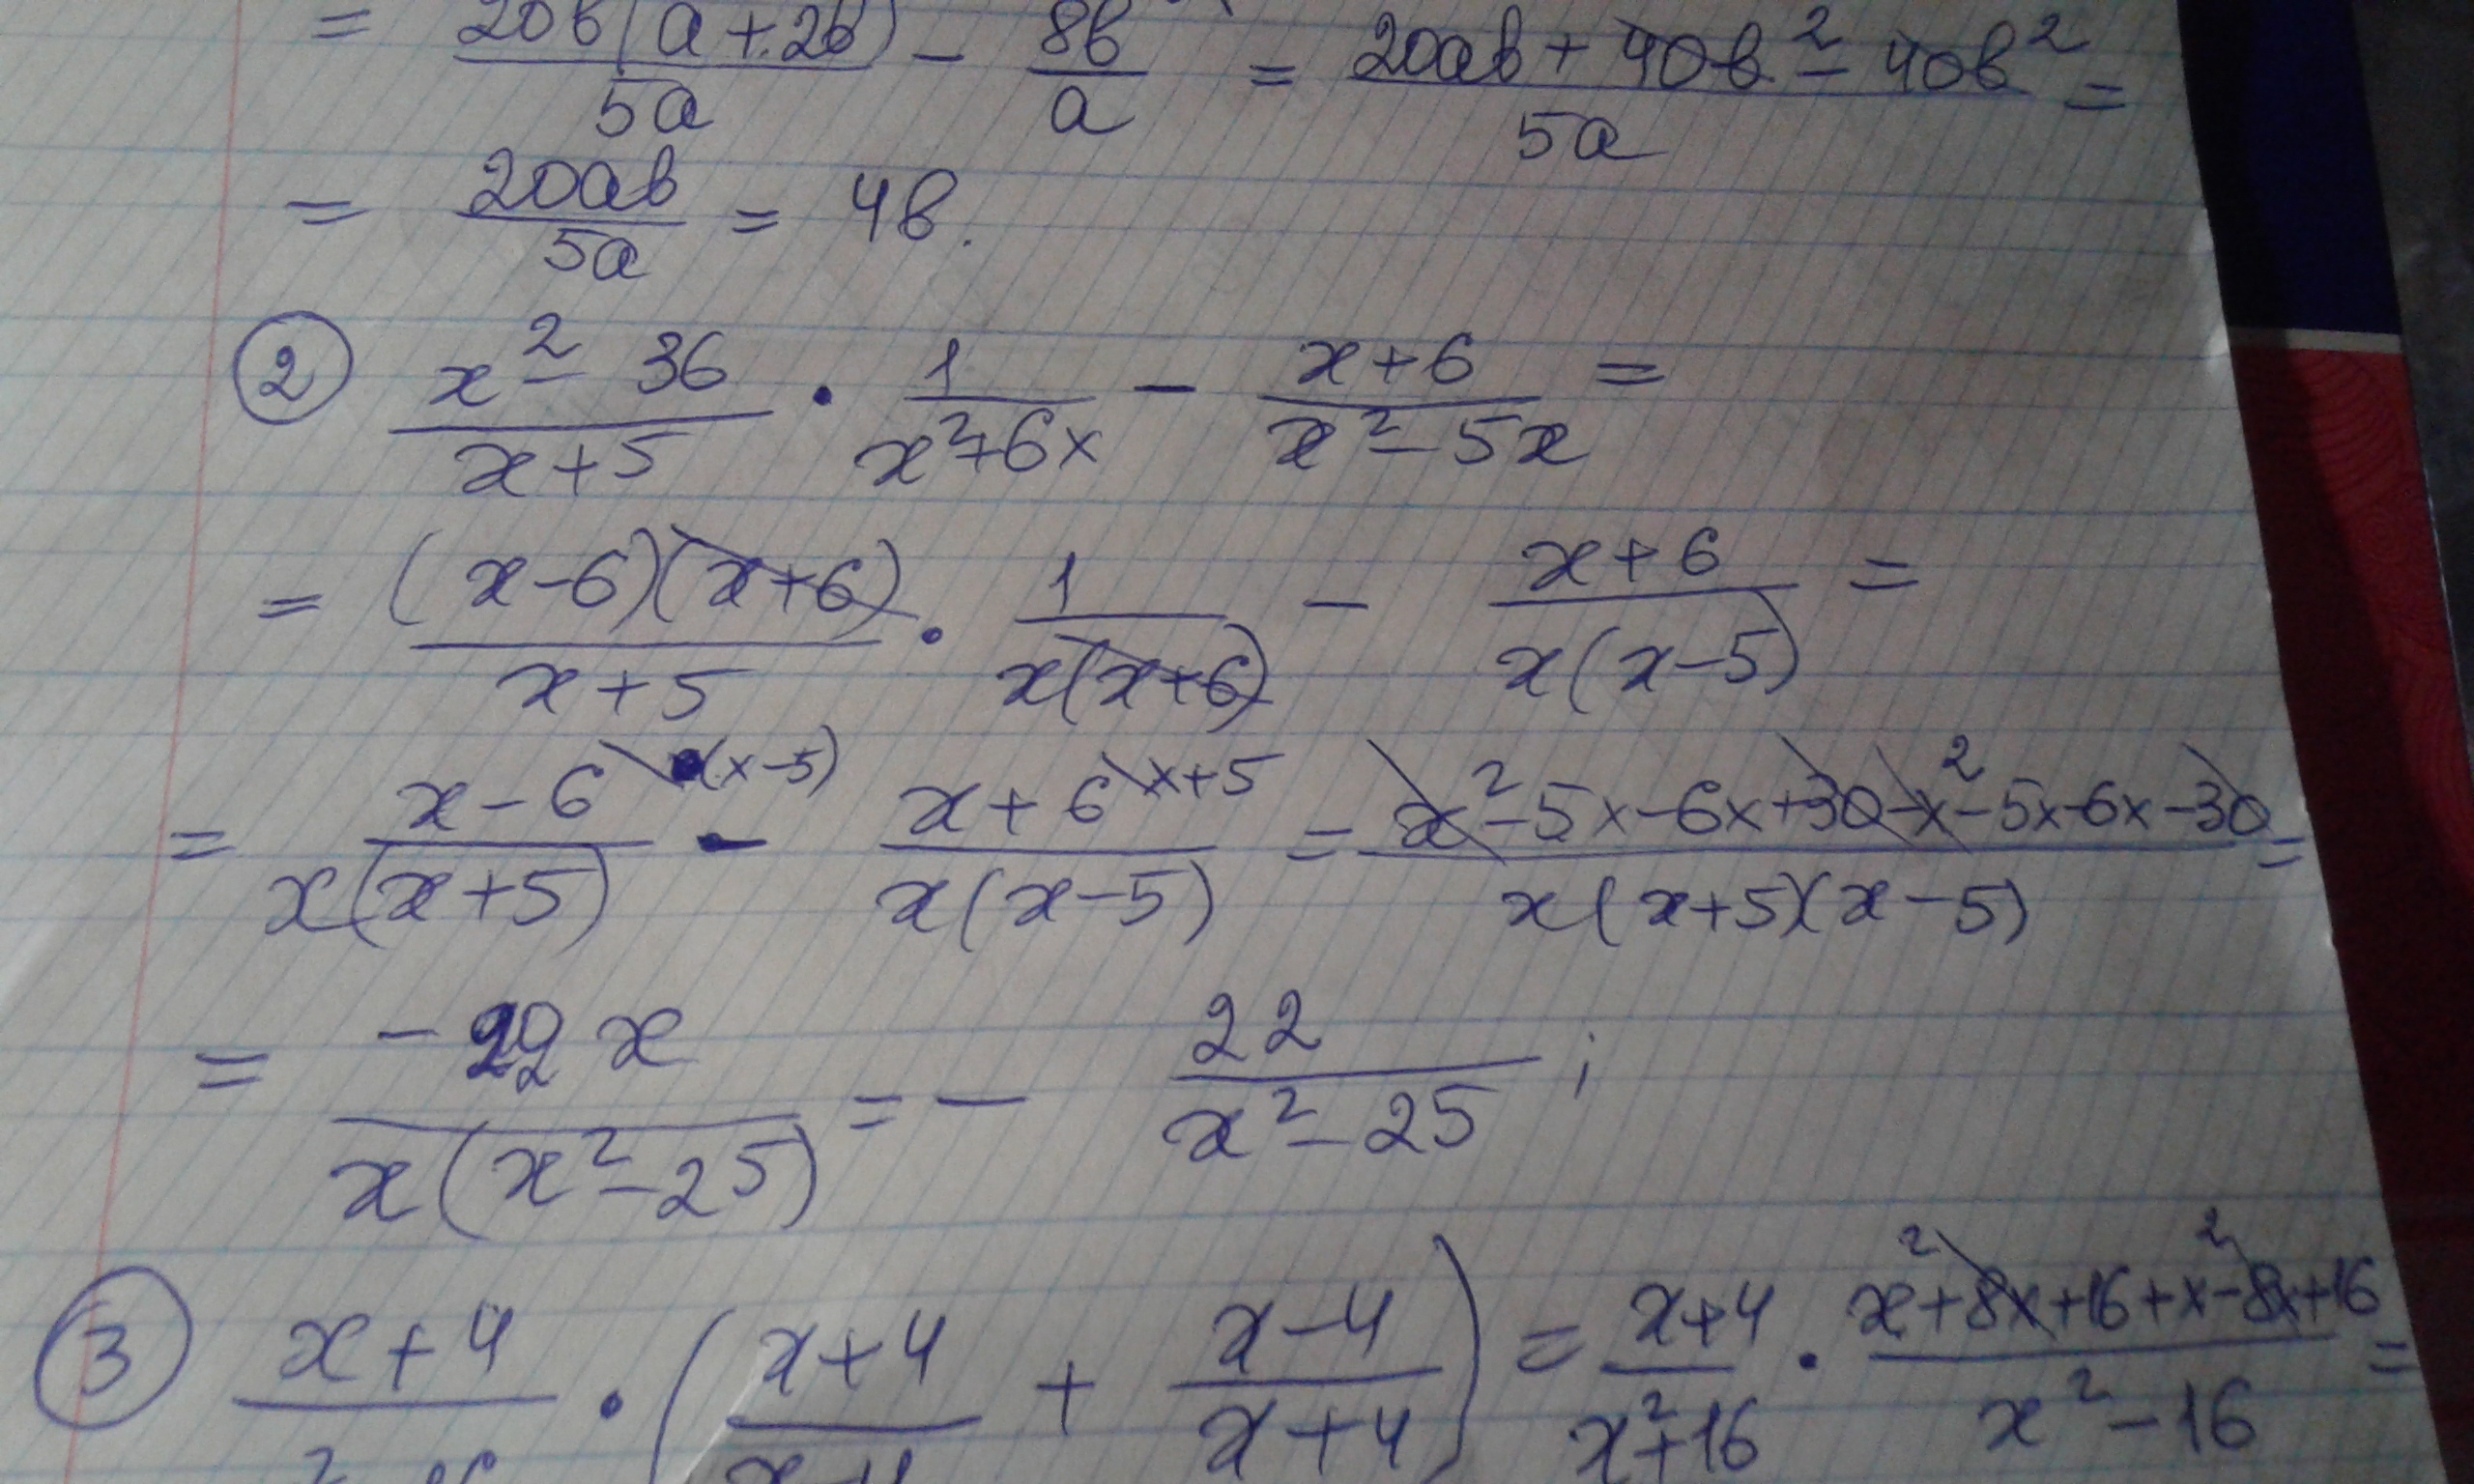 = 20b(a+2b)/5a - 8b/a = (20ab + 40b² - 40b²)/5a =
= 20ab/5a = 4b.
② (x² - 36)/(x+5) · 1/(x²+6x) - (x+6)/(x² - 5x) =
= (x-6)(x+6)/(x+5) · 1/(x(x+6)) - (x+6)/(x(x-5)) =
= (x-6)/(x(x+5)) (x-5) - (x+6)/(x(x-5)) x+5 = (x² - 5x - 6x + 30 - x² - 5x - 6x - 30)/(x(x+5)(x-5)) =
= -22x/(x(x² - 25)) = - 22/(x² - 25) ;
③ (x+4)/ · ((x+4)/(x-4) + (x-4)/(x+4)) = (x+4)/(x²+16) · (x²+8x+16+x²-8x+16)/(x² - 16) =